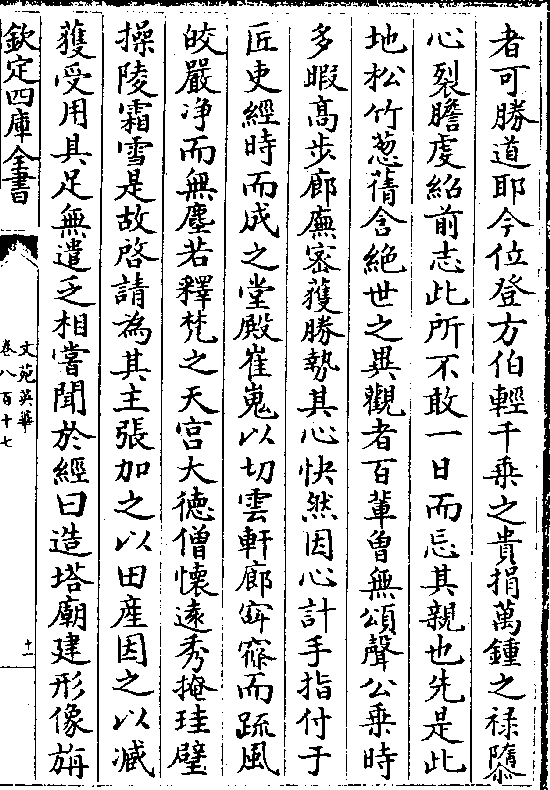 者可勝道耶今位登方伯輕千乗之貴捐萬鍾之禄隳
心裂膽虔紹前志此所不敢一日而忘其親也先是此
地松竹葱蒨含絶世之異觀者百輩曽無頌聲公乗時
多暇髙步廊廡宻獲勝勢其心快然因心計手指付于
匠吏經時而成之堂殿崔嵬以切雲軒廊窲而疏風
皎嚴净而無塵若釋梵之天宫大德僧懷逺秀掩珪璧
操陵霜雪是故啓請為其主張加之以田産因之以臧
獲受用具足無遣乏相嘗聞於經曰造塔廟建形像旃
欽定四庫全書
文苑英華
卷八百十七
十一